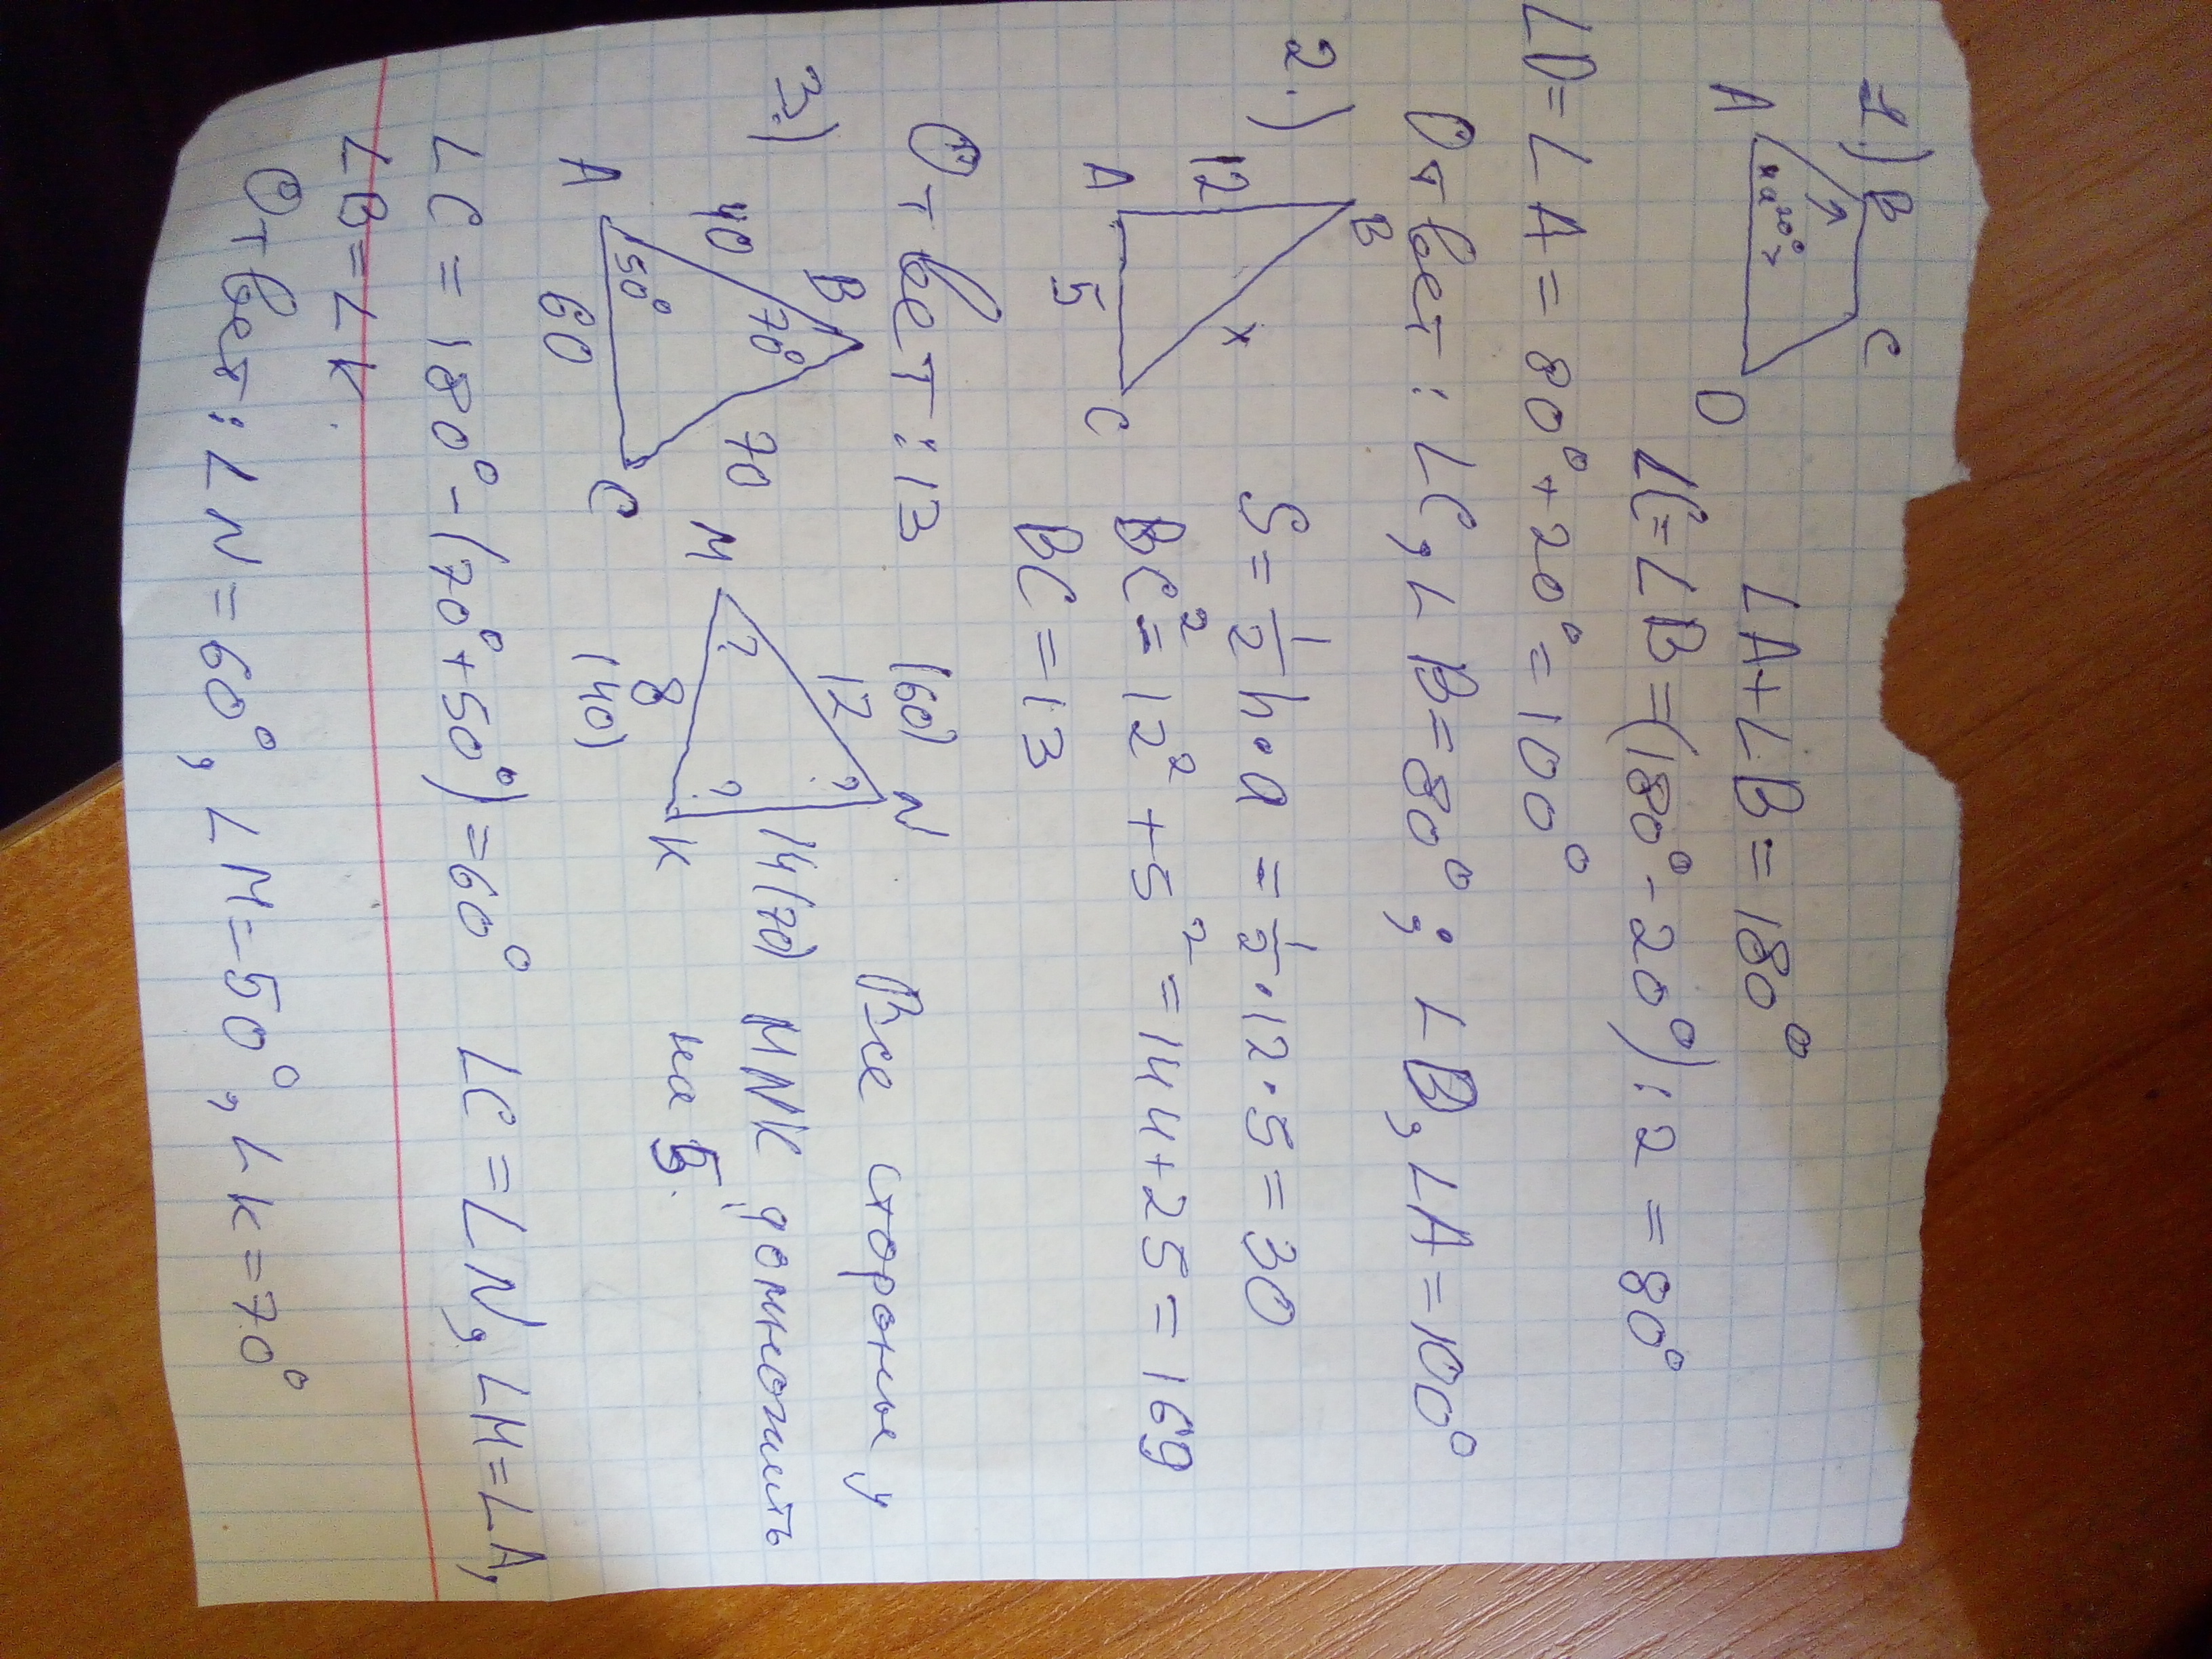 1.)
B C
A на 20° > D
∠A+∠B=180°
∠C=∠B=(180°-20°):2=80°
∠D=∠A=80°+20°=100°
Ответ: ∠C,∠B=80°; ∠D,∠A=100°
2.)
B
12 x
A 5 C
S=1/2h·a=1/2·12·5=30
BC²=12²+5²=144+25=169
BC=13
Ответ: 13
3.)
B
40 70° 70
A 50° 60 C
(60) N
M 12 ?
? 14(70)
8 ? K
(40)
Все стороны у
MNK домножить
на 5.
∠C=180°-(70°+50°)=60° ∠C=∠N, ∠M=∠A,
∠B=∠K.
Ответ: ∠N=60°, ∠M=50°, ∠K=70°